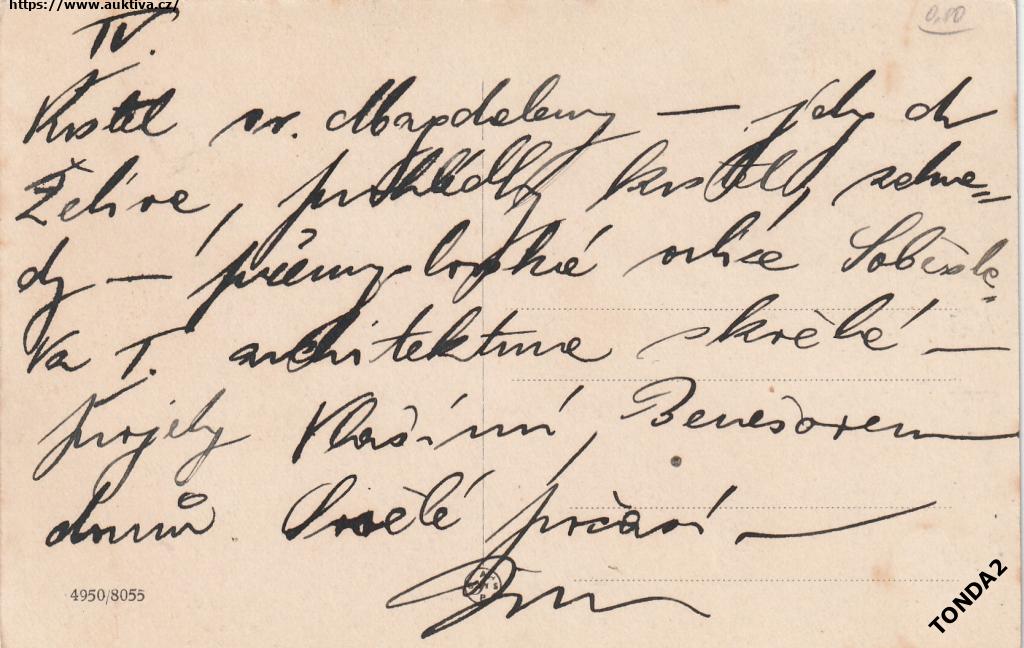 https://www.auktiva.cz/
0,80
IV.
Kostel sv. Magdaleny — jely do
Želiva, prohlédly kostel,
dy — přemyslovské orlice Soběsla-
va I. architektura skvělé —
Projely Vlašimí, Benešovem
domů. Skvělé počasí —
4950/8055
TONDA2